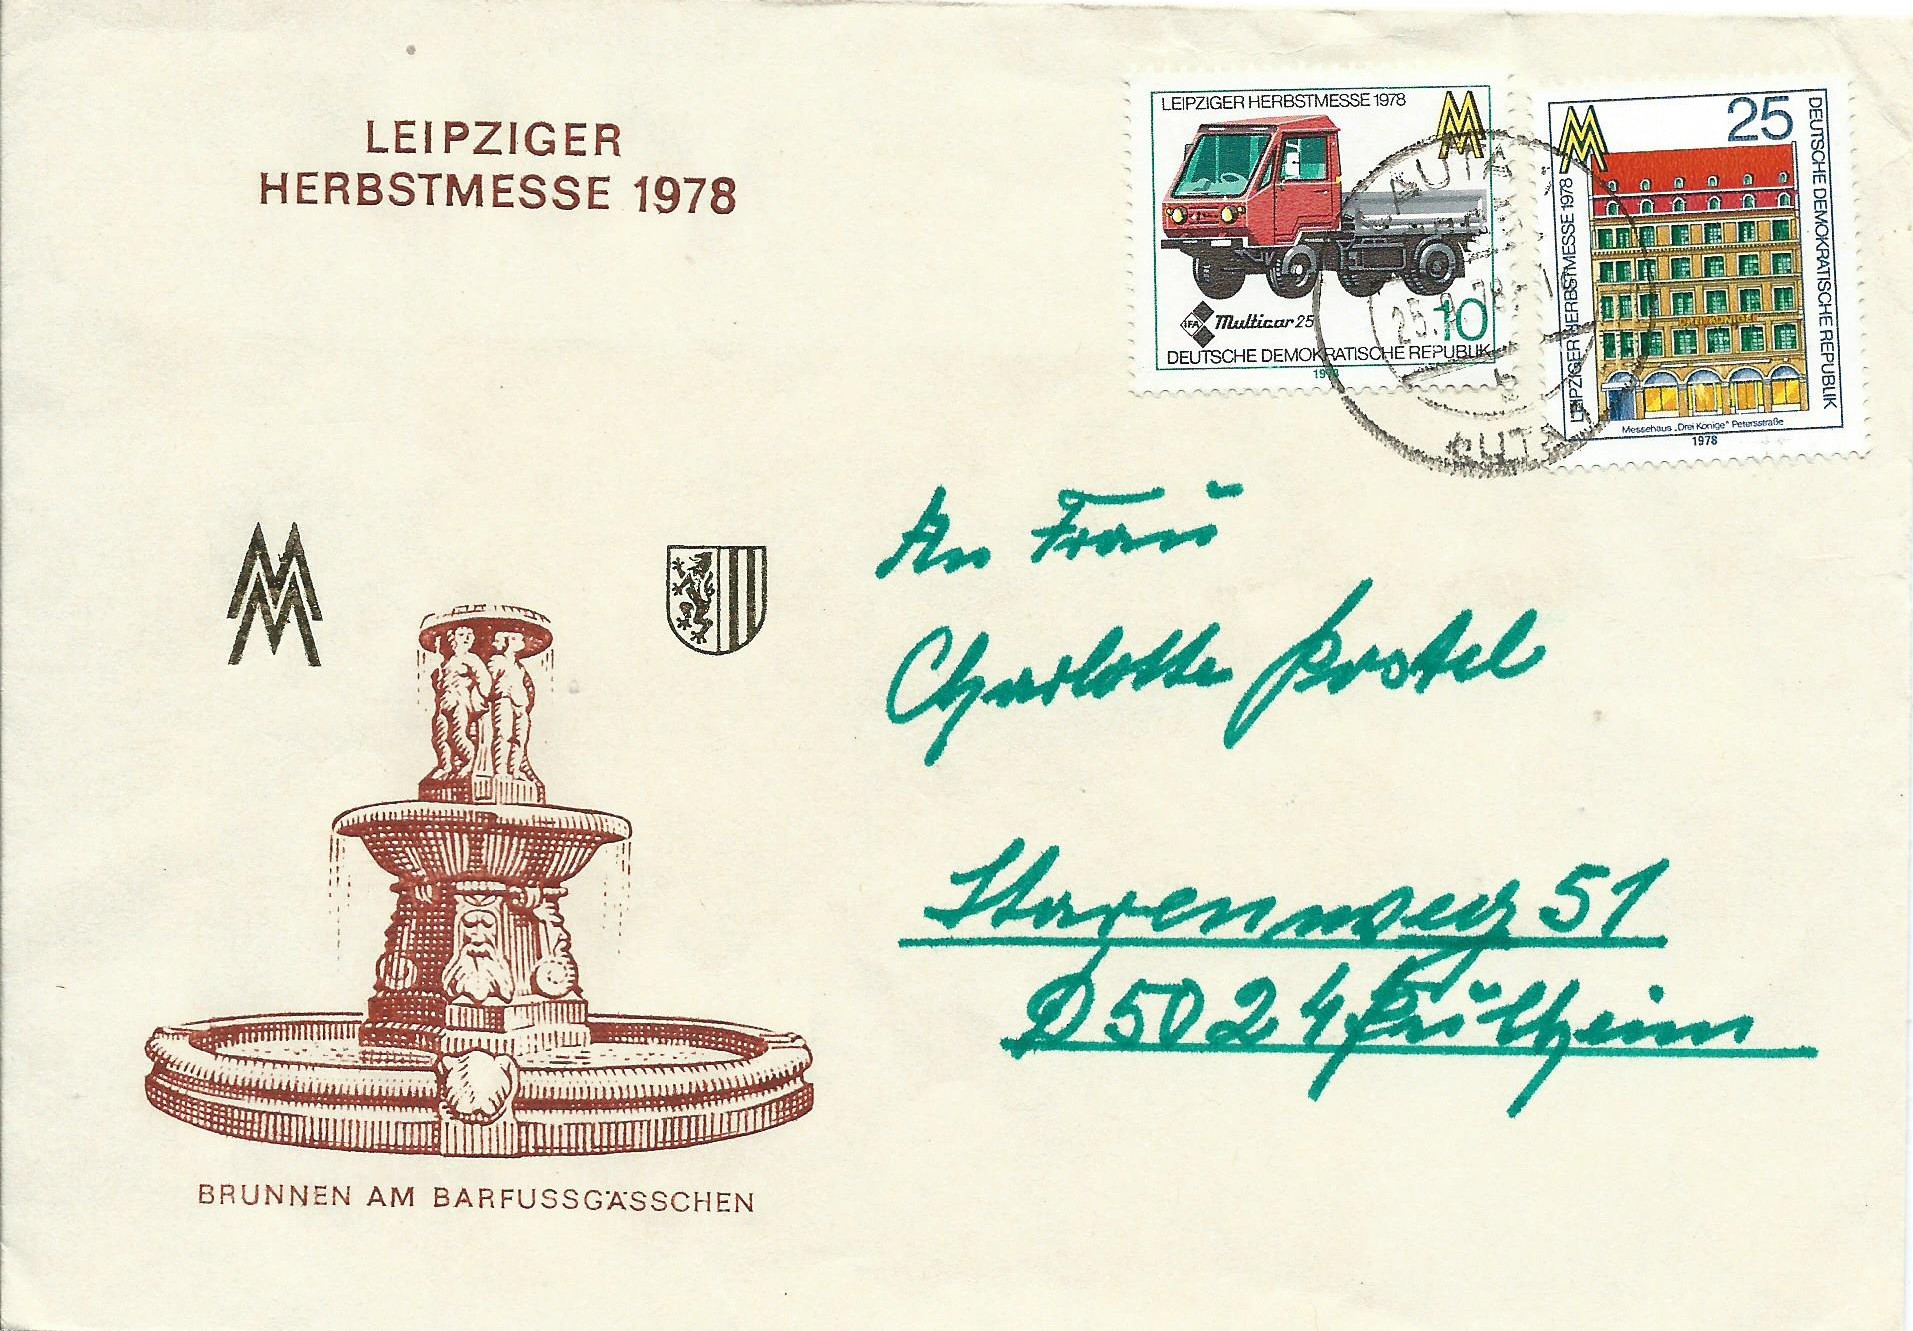 LEIPZIGER
HERBSTMESSE 1978
LEIPZIGER HERBSTMESSE 1978
MM
10
IFA Multicar 25
DEUTSCHE DEMOKRATISCHE REPUBLIK
1978
MM
25
DEUTSCHE DEMOKRATISCHE REPUBLIK
LEIPZIGER HERBSTMESSE 1978
DREI KÖNIGE
Messehaus „Drei Könige" Petersstraße
1978
LAUTA
b
An Frau
Charlotte Postel
Starenweg 51
D 5024 Pulheim
MM
BRUNNEN AM BARFUSSGÄSSCHEN